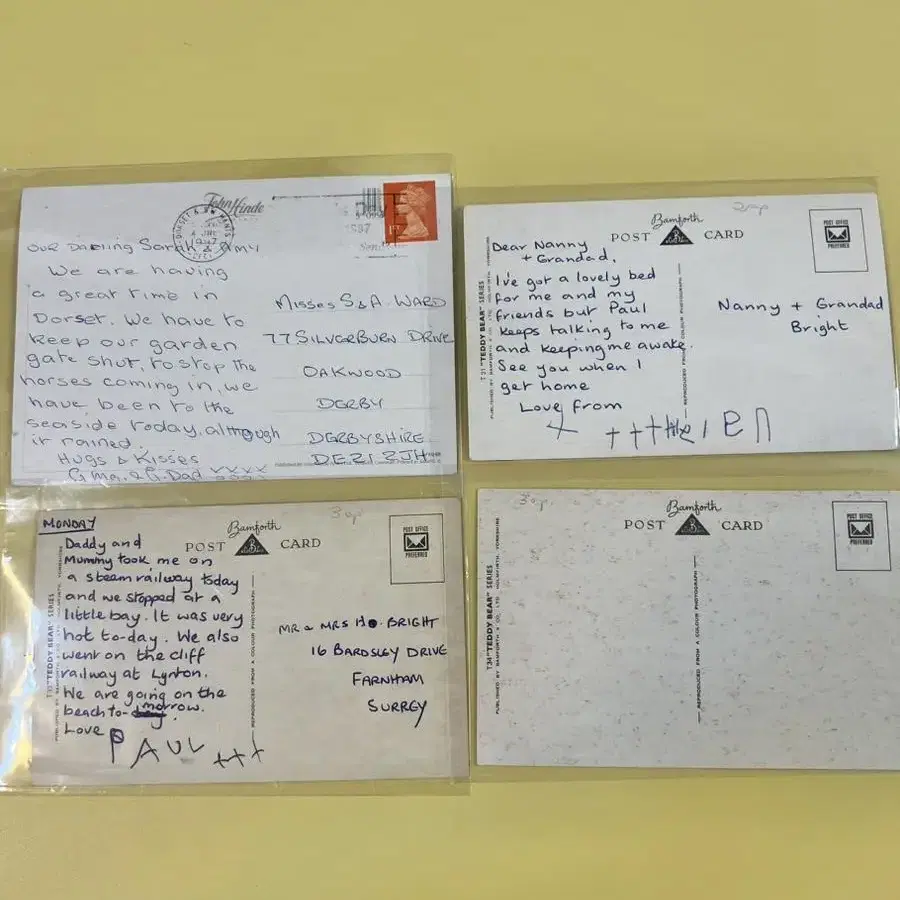 John Hinde
DORSET & HANTS
1987
1ST
OUR DARLING Sarah & Amy
We are having
a great time in
Dorset. We have to
keep our garden
gate shut, to stop the
horses coming in, we
have been to the
seaside today, although
it rained.
Hugs & Kisses
G.Ma. & G.Dad xxxx
MISSES S & A WARD
77 SILVERBURN DRIVE
OAKWOOD
DERBY
DERBYSHIRE
DE21 2JH
Bamforth
POST CARD
POST OFFICE
PREFERRED
T 21 "TEDDY BEAR" SERIES
PUBLISHED BY BAMFORTH & CO. LTD. HOLMFIRTH, YORKSHIRE
REPRODUCED FROM A COLOUR PHOTOGRAPH
Dear Nanny
+ Grandad,
I've got a lovely bed
for me and my
friends but Paul
keeps talking to me
and keeping me awake.
See you when I
get home
Love from
Nanny + Grandad
Bright
MONDAY
30p
Bamforth
POST CARD
POST OFFICE
PREFERRED
"TEDDY BEAR" SERIES
PUBLISHED BY BAMFORTH & CO. LTD. HOLMFIRTH, YORKSHIRE
REPRODUCED FROM A COLOUR PHOTOGRAPH
Daddy and
Mummy took me on
a steam railway today
and we stopped at a
little bay. It was very
hot to-day. We also
went on the cliff
railway at Lynton.
We are going on the
beach to-morrow.
Love
PAUL +++
MR & MRS H. BRIGHT
16 BARDSLEY DRIVE
FARNHAM
SURREY
30p
Bamforth
POST CARD
POST OFFICE
PREFERRED
T34 "TEDDY BEAR" SERIES
PUBLISHED BY BAMFORTH & CO. LTD. HOLMFIRTH, YORKSHIRE
REPRODUCED FROM A COLOUR PHOTOGRAPH